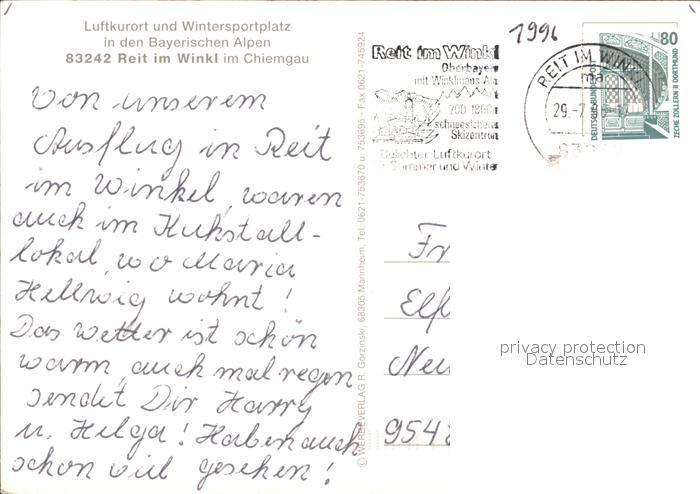 Luftkurort und Wintersportplatz
in den Bayerischen Alpen
83242 Reit im Winkl im Chiemgau
Von unserem
Ausflug in Reit
im Winkel, waren
auch im Kuhstall-
lokal, wo Maria
Hellwig wohnt!
Das Wetter ist schön
warm, auch mal regen
sendet Dir Harry
u. Helga! Haben auch
schon viel gesehen!
© WERBEVERLAG R. Gorzinski, 68305 Mannheim, Tel. 0621-753670 u. 753695 - Fax 0621-745924
1996
Reit im Winkl
Oberbayern
mit Winklmoos-Alm
700-1860m
schneesicheres
Skizentrum
Beliebter Luftkurort
Sommer und Winter
REIT IM WINKL
ma
29.-7.
80
DEUTSCHE BUNDESPOST
ZECHE ZOLLERN II DORTMUND
Fr
Elf
Neu
954
privacy protection
Datenschutz